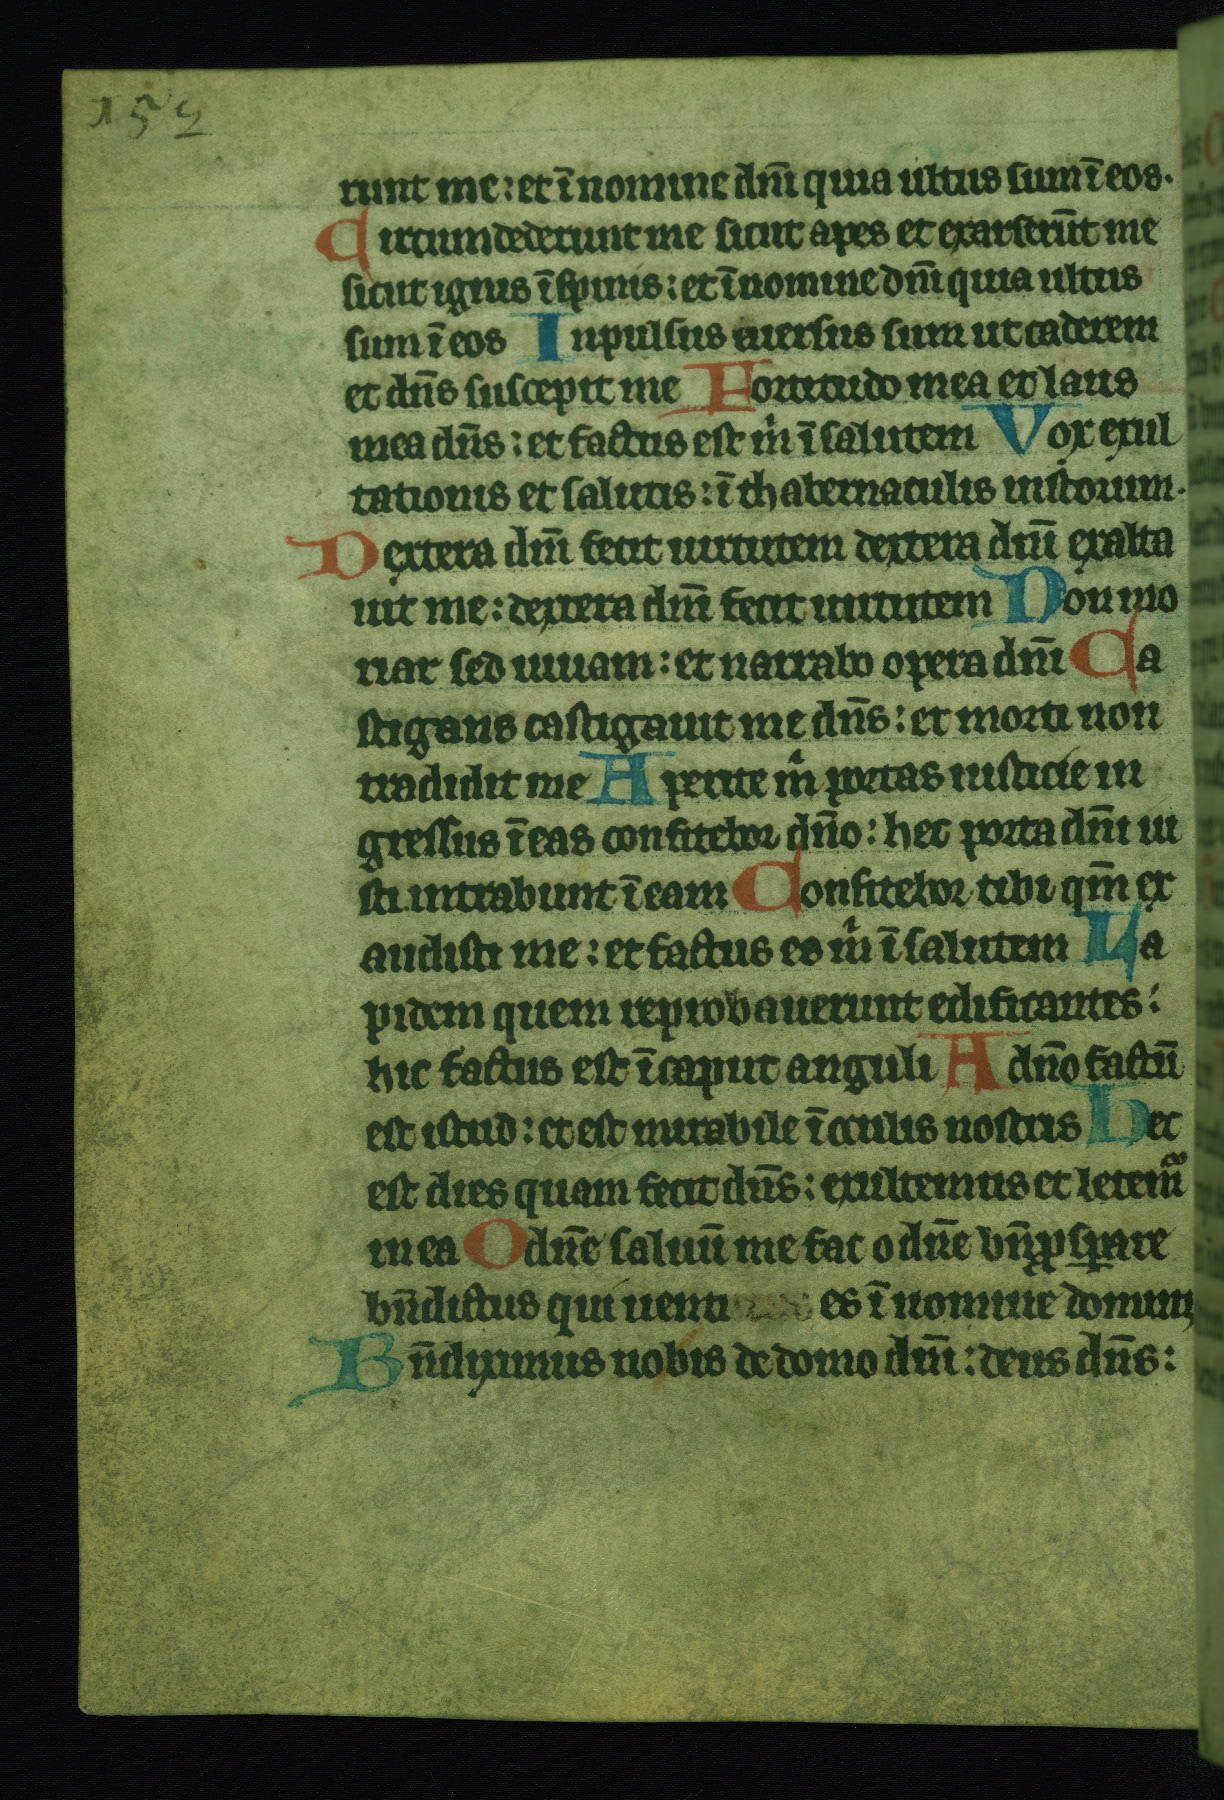 152
runt me: et ī nomine dn̄i quia ultus sum ī eos.
Circumdederunt me sicut apes et exarserūt me
sicut ignis ī spinis: et ī nomine dn̄i quia ultus
sum ī eos Inpulsus euersus sum ut caderem
et dn̄s suscepit me Fortitudo mea et laus
mea dn̄s: et factus est m̊ ī salutem Vox exul
tationis et salutis: ī thabernaculis iustorum.
Dextera dn̄i fecit uirtutem dextera dn̄i exalta
uit me: dextera dn̄i fecit uirtutem Non mo
riar sed uiuam: et narrabo opera dn̄i Ca
stigans castigauit me dn̄s: et morti non
tradidit me Aperite m̊ portas iusticie in
gressus ī eas confitebor dn̄o: hec porta dn̄i iu
sti intrabunt ī eam Confitebor tibi qm̄ ex
audisti me: et factus es m̊ ī salutem La
pidem quem reprobauerunt edificantes:
hic factus est ī caput anguli A dn̄o factū
est istud: et est mirabile ī oculis nostris Hec
est dies quam fecit dn̄s: exultemus et letem̄
in ea O dn̄e saluū me fac o dn̄e bn̄ ꝓsꝑare
bn̄dictus qui uenti es ī nomine domini
Bn̄diximus uobis de domo dn̄i: deus dn̄s: